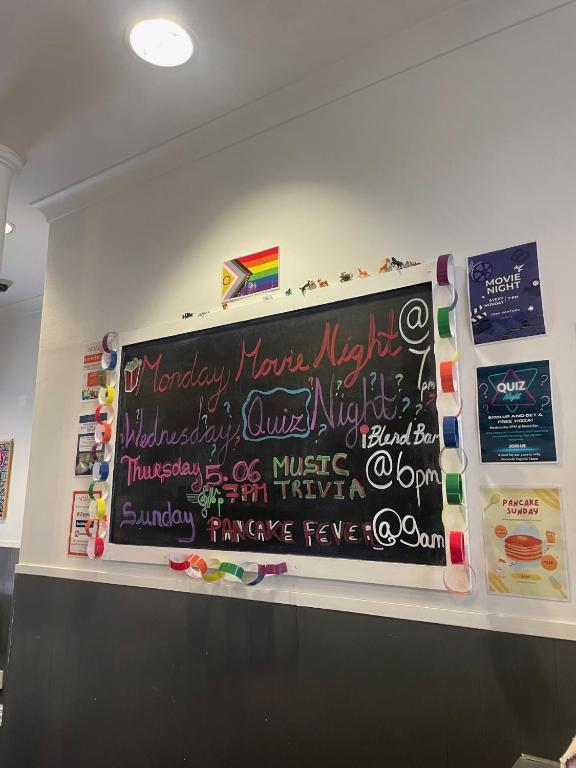 Monday Movie Night @
7pm
Wednesday, Quiz Night
iBlend Bar
@6pm
Thursday 5.06 MUSIC
7PM TRIVIA
Sunday PANCAKE FEVER @9am
MOVIE
NIGHT
EVERY
MONDAY 7 PM
QUIZ
Night
SIGN UP AND GET A
FREE PIZZA!
JOIN US
PANCAKE
SUNDAY